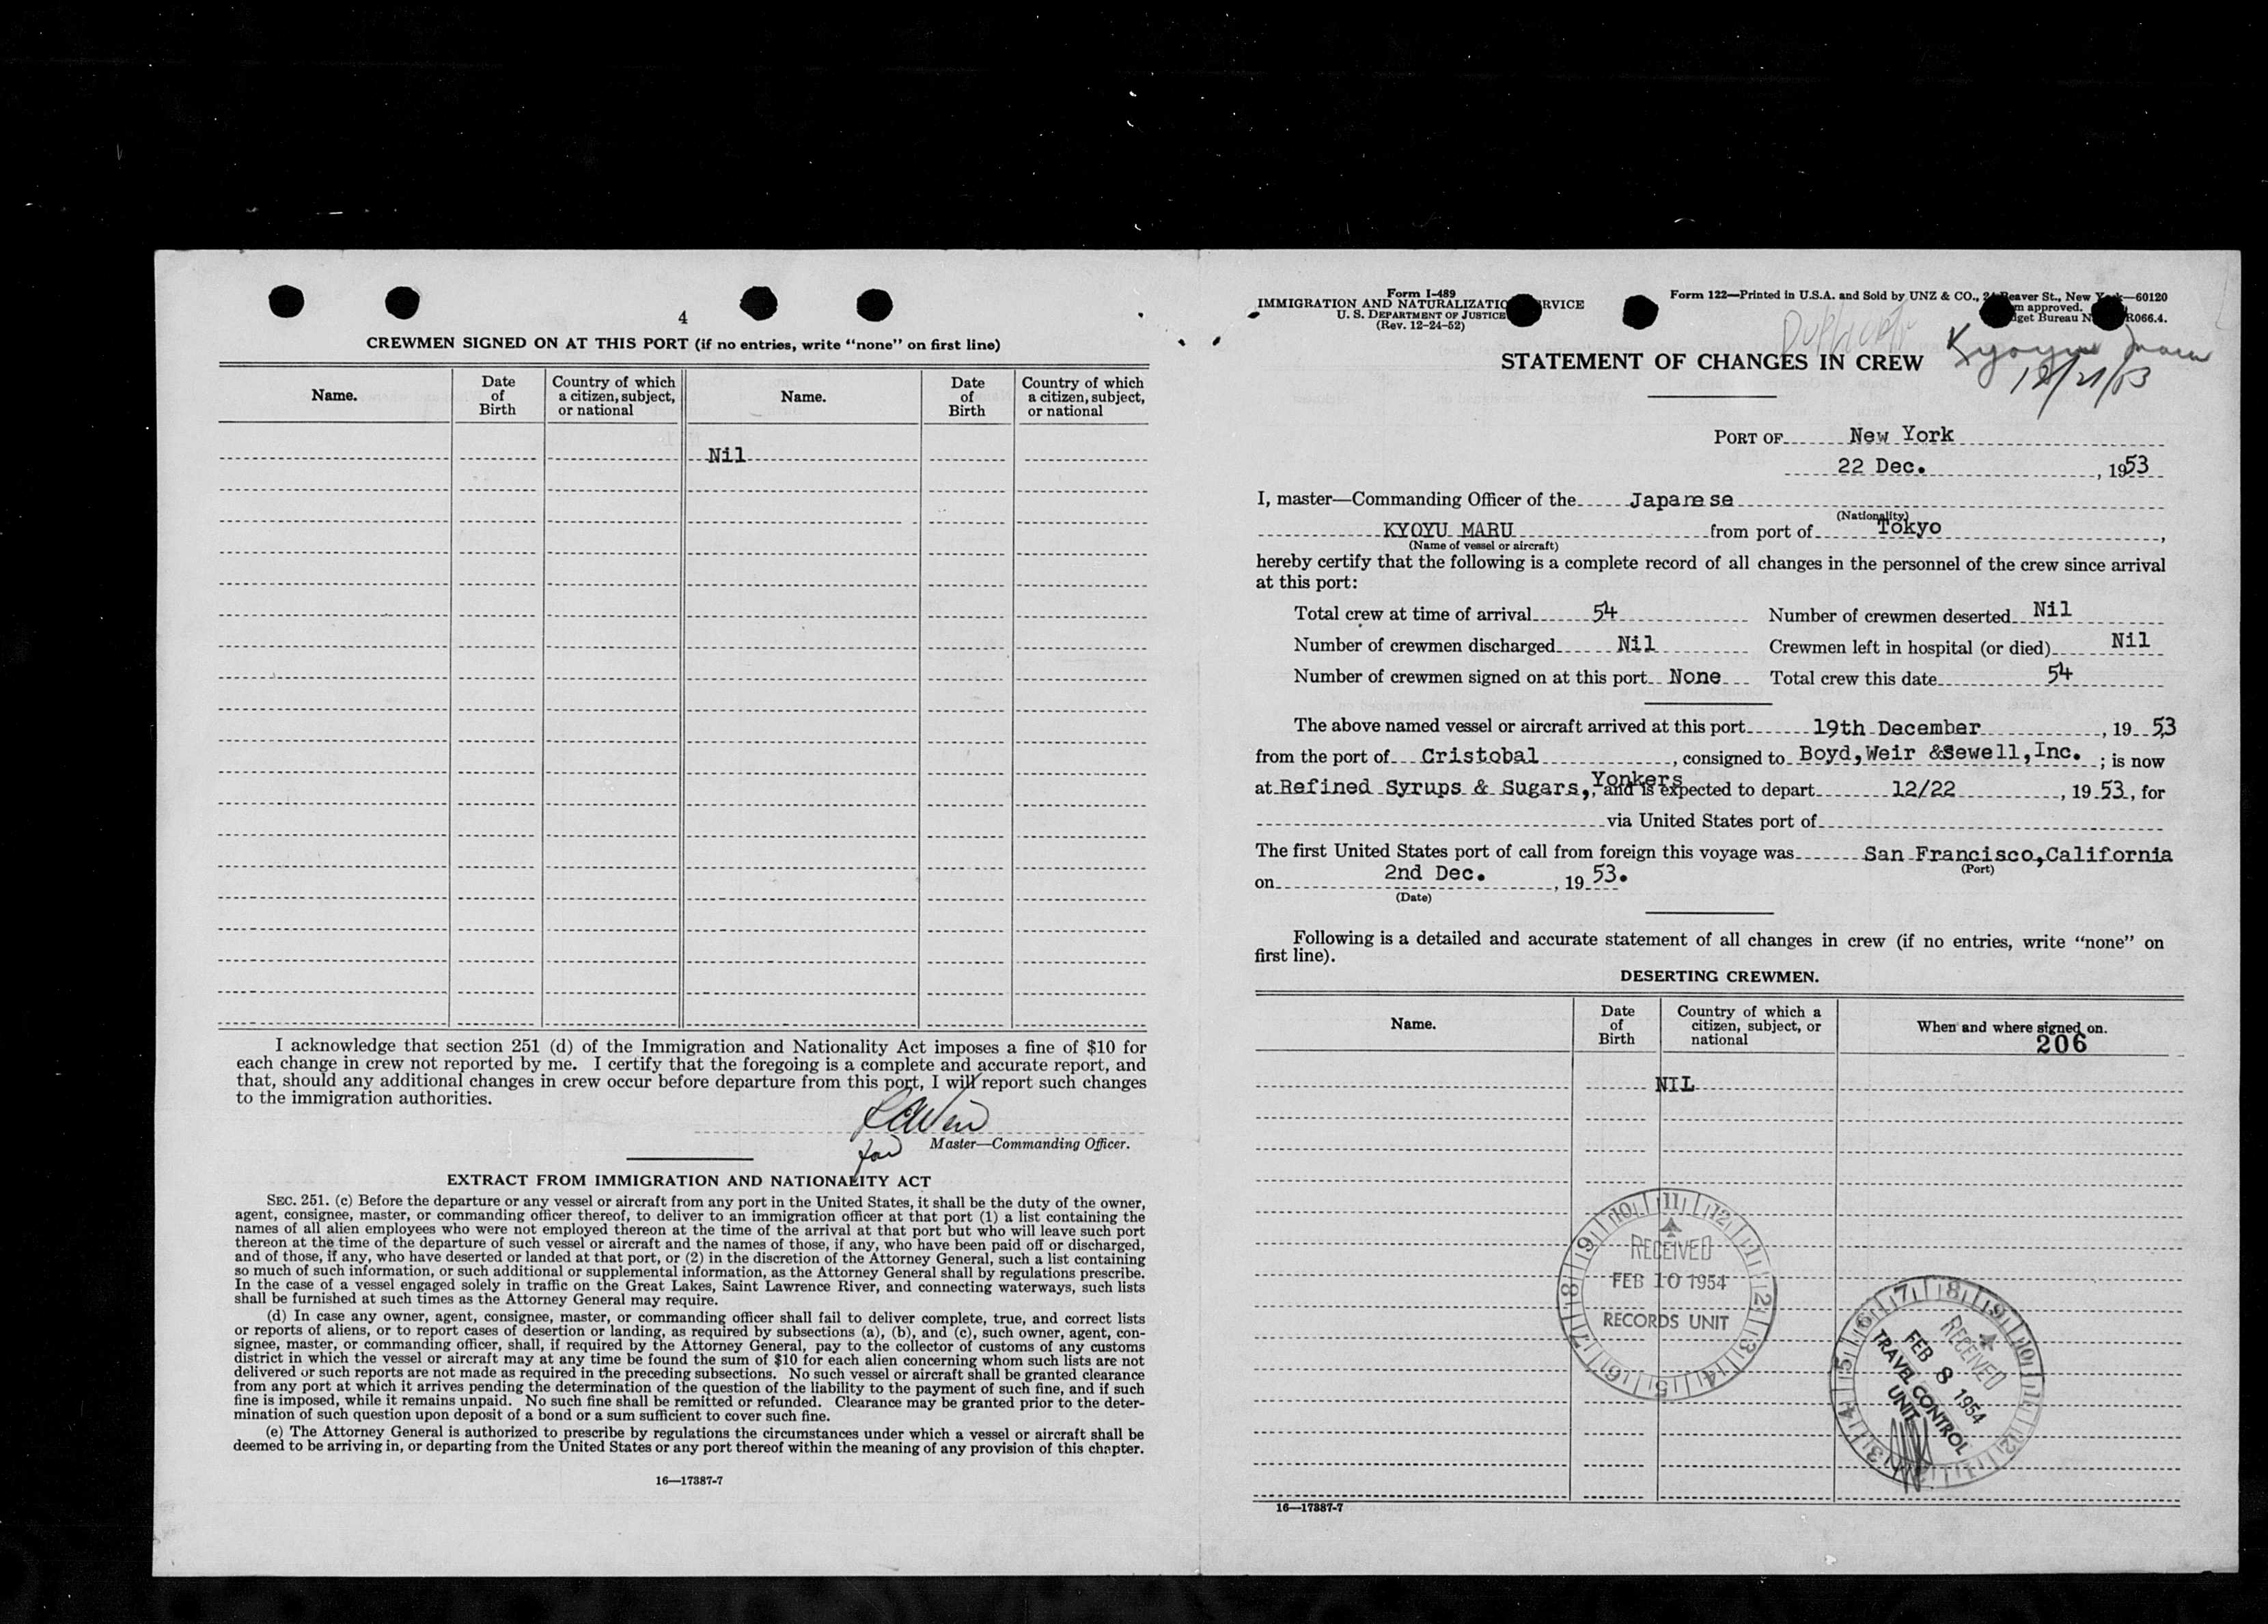 4
CREWMEN SIGNED ON AT THIS PORT (if no entries, write "none" on first line)
Name. Date of Birth Country of which a citizen, subject, or national Name. Date of Birth Country of which a citizen, subject, or national
Nil
I acknowledge that section 251 (d) of the Immigration and Nationality Act imposes a fine of $10 for
each change in crew not reported by me. I certify that the foregoing is a complete and accurate report, and
that, should any additional changes in crew occur before departure from this port, I will report such changes
to the immigration authorities.
for Master—Commanding Officer.
EXTRACT FROM IMMIGRATION AND NATIONALITY ACT
SEC. 251. (c) Before the departure or any vessel or aircraft from any port in the United States, it shall be the duty of the owner,
agent, consignee, master, or commanding officer thereof, to deliver to an immigration officer at that port (1) a list containing the
names of all alien employees who were not employed thereon at the time of the arrival at that port but who will leave such port
thereon at the time of the departure of such vessel or aircraft and the names of those, if any, who have been paid off or discharged,
and of those, if any, who have deserted or landed at that port, or (2) in the discretion of the Attorney General, such a list containing
so much of such information, or such additional or supplemental information, as the Attorney General shall by regulations prescribe.
In the case of a vessel engaged solely in traffic on the Great Lakes, Saint Lawrence River, and connecting waterways, such lists
shall be furnished at such times as the Attorney General may require.
(d) In case any owner, agent, consignee, master, or commanding officer shall fail to deliver complete, true, and correct lists
or reports of aliens, or to report cases of desertion or landing, as required by subsections (a), (b), and (c), such owner, agent, con-
signee, master, or commanding officer, shall, if required by the Attorney General, pay to the collector of customs of any customs
district in which the vessel or aircraft may at any time be found the sum of $10 for each alien concerning whom such lists are not
delivered or such reports are not made as required in the preceding subsections. No such vessel or aircraft shall be granted clearance
from any port at which it arrives pending the determination of the question of the liability to the payment of such fine, and if such
fine is imposed, while it remains unpaid. No such fine shall be remitted or refunded. Clearance may be granted prior to the deter-
mination of such question upon deposit of a bond or a sum sufficient to cover such fine.
(e) The Attorney General is authorized to prescribe by regulations the circumstances under which a vessel or aircraft shall be
deemed to be arriving in, or departing from the United States or any port thereof within the meaning of any provision of this chapter.
16—17387-7
Form I-489
IMMIGRATION AND NATURALIZATIO RVICE
U. S. DEPARTMENT OF JUSTICE
(Rev. 12-24-52)
Form 122—Printed in U.S.A. and Sold by UNZ & CO., 24 Beaver St., New York—60120
m approved.
get Bureau N R066.4.
Duplicate
Kyoyu Maru
12/21/53
STATEMENT OF CHANGES IN CREW
PORT OF New York
22 Dec. , 1953
I, master—Commanding Officer of the Japanese
(Nationality)
KYOYU MARU from port of Tokyo ,
(Name of vessel or aircraft)
hereby certify that the following is a complete record of all changes in the personnel of the crew since arrival
at this port:
Total crew at time of arrival 54 Number of crewmen deserted Nil
Number of crewmen discharged Nil Crewmen left in hospital (or died) Nil
Number of crewmen signed on at this port None Total crew this date 54
The above named vessel or aircraft arrived at this port 19th December , 19 53
from the port of Cristobal , consigned to Boyd,Weir &Sewell,Inc. ; is now
at Refined Syrups & Sugars, Yonkers, and is expected to depart 12/22 , 19 53, for
via United States port of
The first United States port of call from foreign this voyage was San Francisco,California
(Port)
on 2nd Dec. , 19 53.
(Date)
Following is a detailed and accurate statement of all changes in crew (if no entries, write "none" on
first line).
DESERTING CREWMEN.
Name. Date of Birth Country of which a citizen, subject, or national When and where signed on.
206
NIL
10 11 12 1 2 3 4 5 6 7 8 9
RECEIVED
FEB 10 1954
RECORDS UNIT
7 8 9 10 11 12 1 2 3 4 5 6
RECEIVED
FEB 8 1954
TRAVEL CONTROL
UNIT
16—17387-7